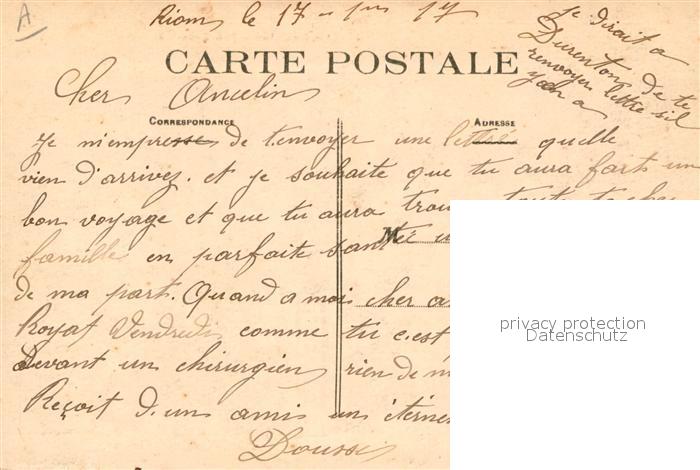 A
Riom le 17 - 17
je dirait a
Durenton de te
renvoyer lettre s'il
y en a
CARTE POSTALE
Cher Ancelin
CORRESPONDANCE
ADRESSE
Je m'empresse de t'envoyer une lettre quelle
vien d'arrivez. et je souhaite que tu aura fait un
bon voyage et que tu aura toute ta
M
famille en parfaite santée
de ma part. Quand a moi cher
Royat Vendredi comme tu c.est
devant un chirurgien rien de
Reçoit d.un ami un
Doussi
privacy protection
Datenschutz